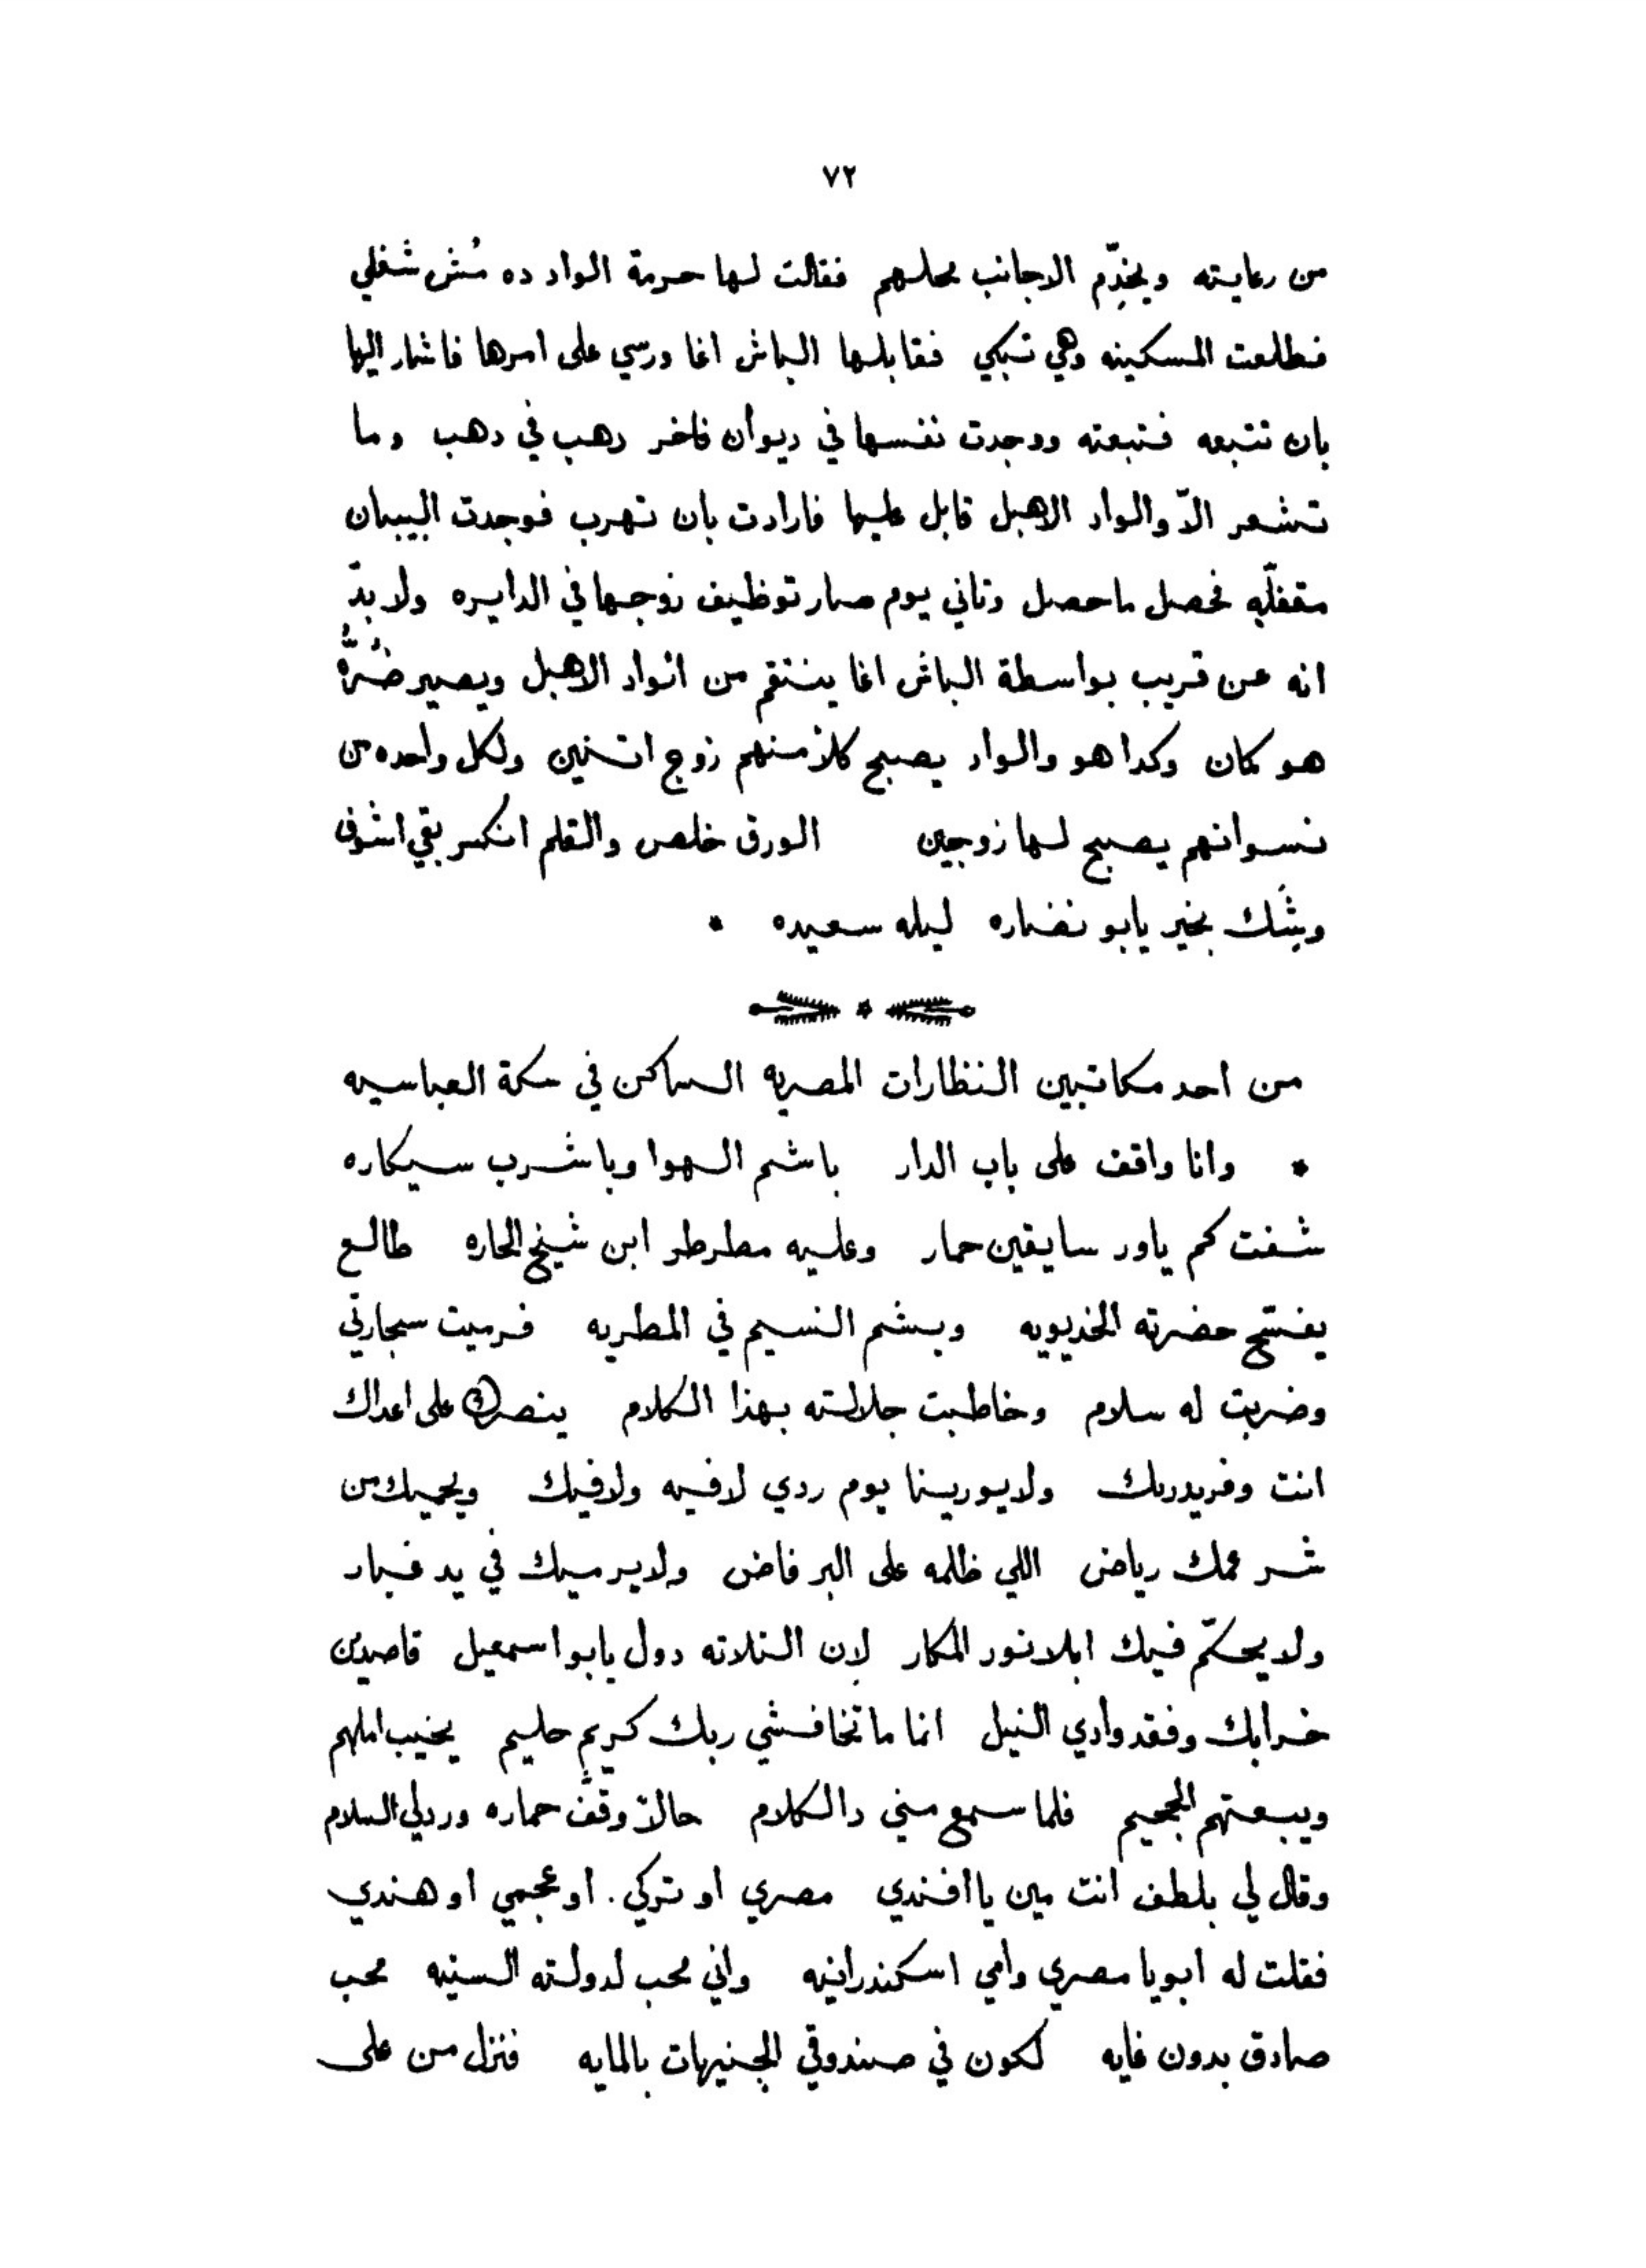 ٧٢
من رعايته ويخدِّم الاجانب محلهم فقالت لها حرمة الواد ده مُش شغلي
فطلعت المسكينه وهي تبكي فقابلها الباش اغا ورسي على امرها فاشار اليها
بان تتبعه فتبعته ووجدت نفسها في ديوان فاخر دهب في دهب وما
تشعر الاّ والواد الاهبل قابل عليها فارادت بان تهرب فوجدت البيبان
مقفلّه فحصل ما حصل وتاني يوم صار توظيف زوجها في الدايره ولا بدّ
انه عن قريب بواسطة الباش اغا ينتقم من الواد الاهبل ويصير ضُرُّه
هو كمان وكدا هو والواد يصبح كلاً منهم زوج اتنين ولكل واحده من
نسوانهم يصبح لها زوجين الورق خلص والقلم انكسر بقي اشوف
وِشَّك بخير يابو نضاره ليله سعيده *
من احد مكاتبين النظارات المصريه الساكن في سكة العباسيه
* وانا واقف على باب الدار باشم الهوا وباشرب سيكاره
شفت كم ياور سايقين حمار وعليه مطرطر ابن شيخ الحاره طالع
يفسّح حضرته الخديويه وبشم النسيم في المطريه فرميت سجارتي
وضربت له سلام وخاطبت جلالته بهذا الكلام ينصرك على اعداك
انت وفريدربك ولا يورينا يوم ردي لا فيه ولا فيك ويحميك من
شر عمك رياض اللي ظلمه على البر فاض ولا يرميك في يد غبار
ولا يحكّم فيك ابلانور المكار لان التلاته دول يابو اسمعيل قاصدين
خرابك وفقد وادي النيل انما ما تخافشي ربك كريم حليم يخيب املهم
ويبعتهم الجحيم فلما سمع مني دا الكلام حالاً وقَّف حماره ورد لي السلام
وقال لي بلطف انت مين يا افندي مصري او تركي . او عجمي او هندي
فقلت له ابويا مصري وامي اسكندرانيه واني محب لدولته السنيه محب
صادق بدون غايه لكون في صندوقي الجنيهات بالمايه فنزل من على